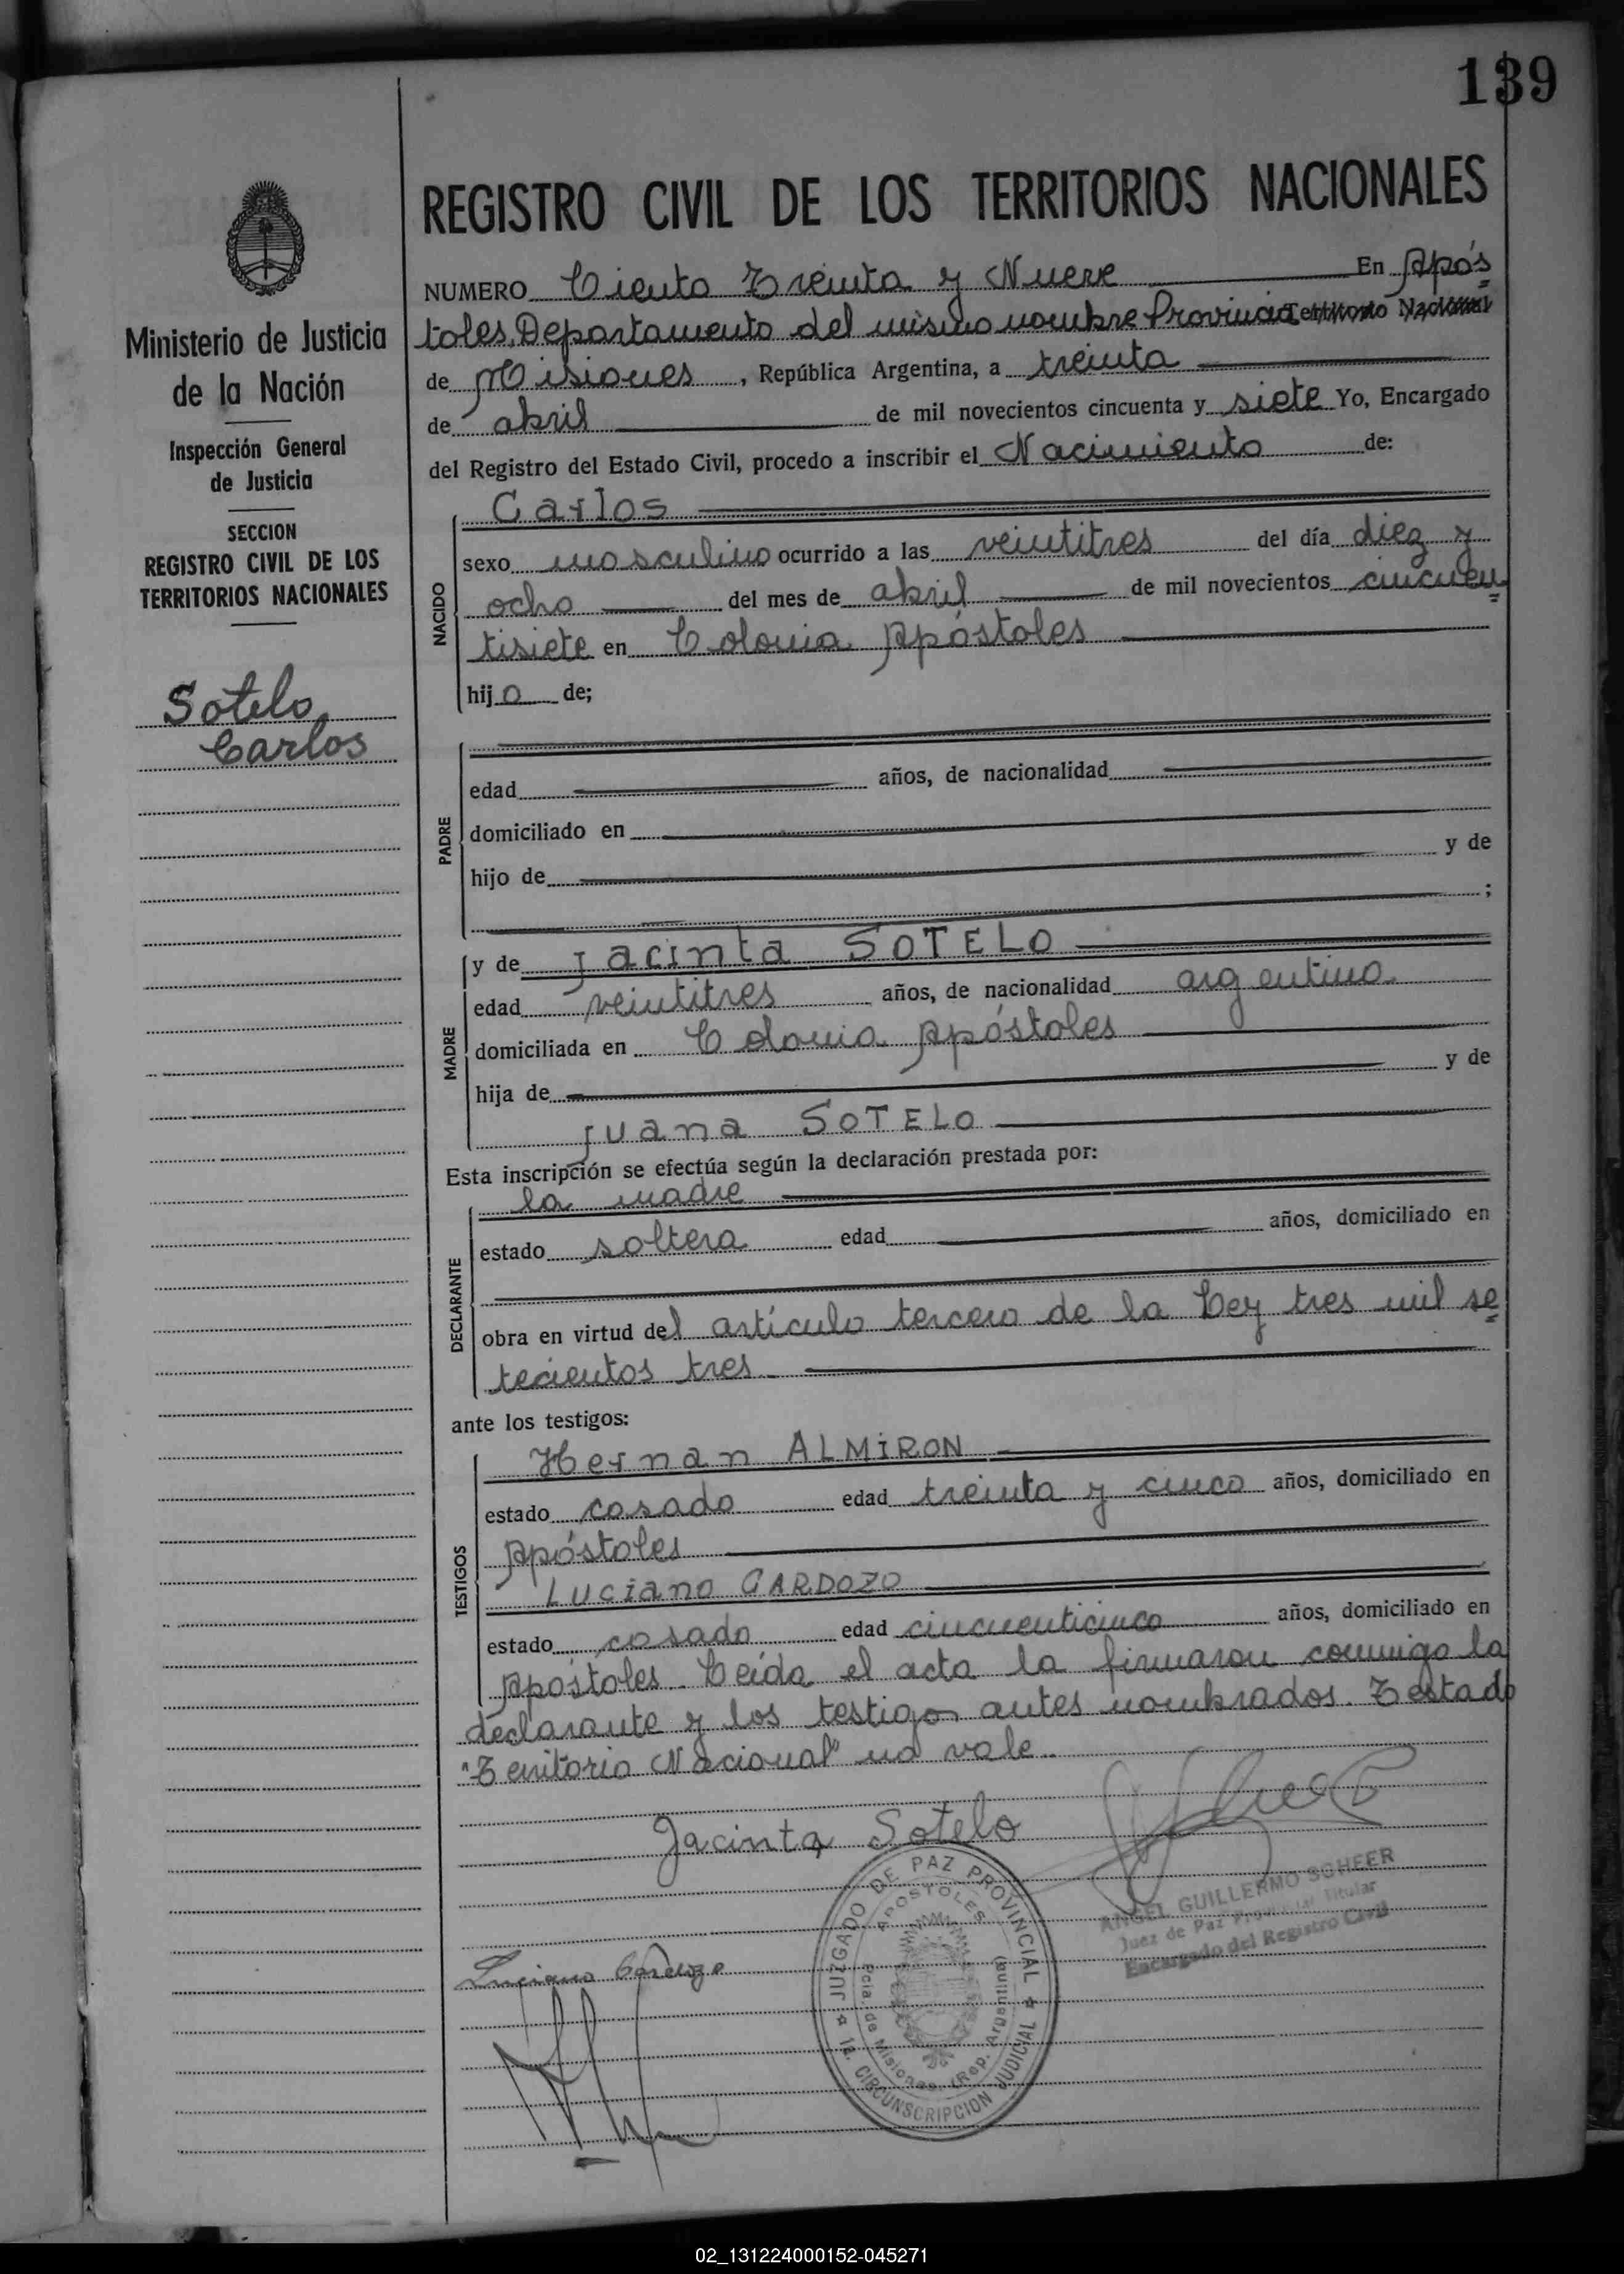 139
REGISTRO CIVIL DE LOS TERRITORIOS NACIONALES
NUMERO Ciento Treinta y Nueve En Após
toles, Departamento del mismo nombre Provincia Territorio Nacional
de Misiones, República Argentina, a treinta
de abril de mil novecientos cincuenta y siete Yo, Encargado
del Registro del Estado Civil, procedo a inscribir el Nacimiento de:
Ministerio de Justicia
de la Nación
Inspección General
de Justicia
SECCION
REGISTRO CIVIL DE LOS
TERRITORIOS NACIONALES
Sotelo
Carlos
NACIDO
Carlos
sexo masculino ocurrido a las veintitres del día diez y
ocho del mes de abril de mil novecientos cincuen
tisiete en Colonia Apóstoles
hijo de;
PADRE
edad años, de nacionalidad
domiciliado en
hijo de y de
;
MADRE
y de Jacinta SOTELO
edad veintitres años, de nacionalidad argentina
domiciliada en Colonia Apóstoles
hija de y de
Juana SOTELO
Esta inscripción se efectúa según la declaración prestada por:
DECLARANTE
la madre
estado soltera edad años, domiciliado en
obra en virtud del artículo tercero de la Ley tres mil se
tecientos tres
ante los testigos:
TESTIGOS
Hernan ALMIRON
estado casado edad treinta y cinco años, domiciliado en
Apóstoles
Luciano CARDOZO
estado casado edad cincuenticinco años, domiciliado en
Apóstoles. Leída el acta la firmaron conmigo la
declarante y los testigos antes nombrados. Testado
"Territorio Nacional" no vale.
Jacinta Sotelo
ANGEL GUILLERMO SCHEER
Juez de Paz Provincial Titular
Encargado del Registro Civil
Luciano Cardozo
JUZGADO DE PAZ PROVINCIAL
APOSTOLES
Pcia. de Misiones (Rep. Argentina)
1a. CIRCUNSCRIPCION JUDICIAL
02_131224000152-045271